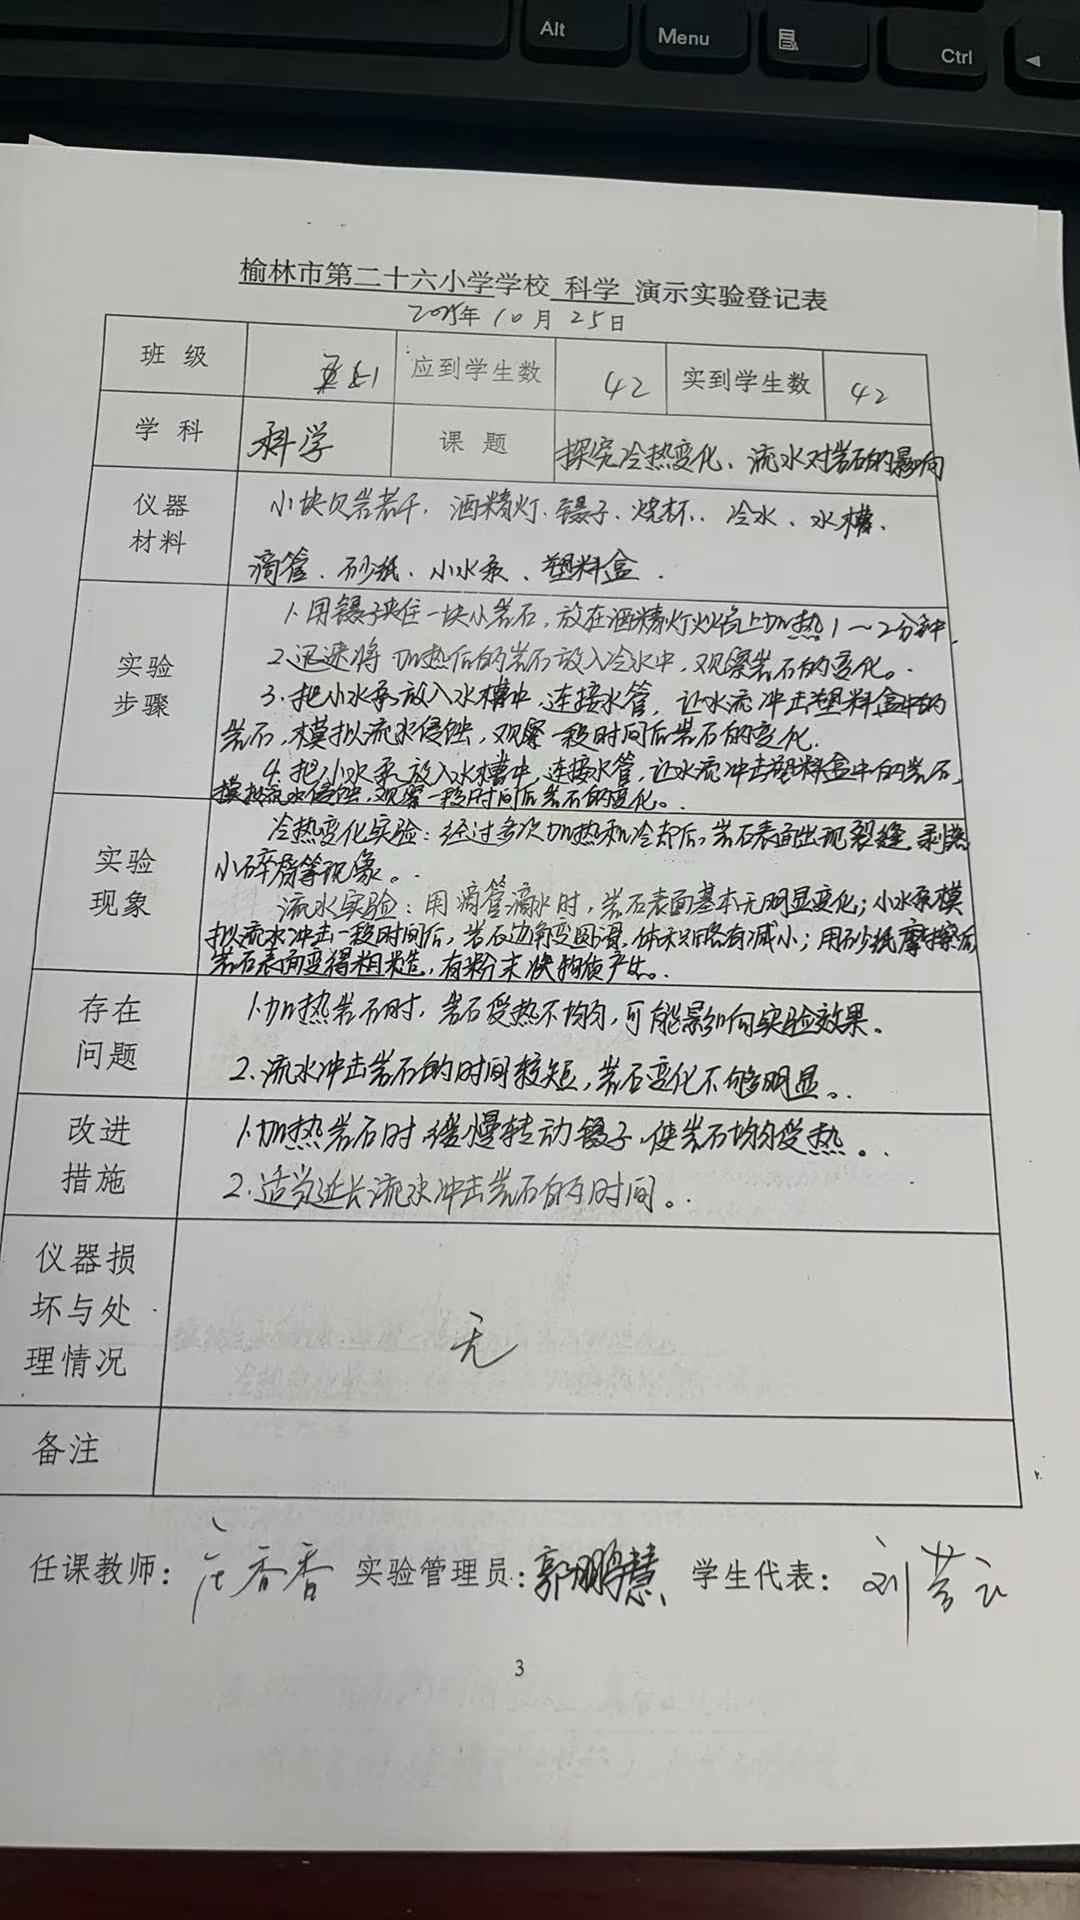 Alt
Menu
Ctrl
榆林市第二十六小学学校 科学 演示实验登记表
2025年10月25日
班 级 应到学生数 42 实到学生数 42
学 科 科学 课 题 探究冷热变化、流水对岩石的影响
仪器 小块页岩若干、酒精灯、镊子、烧杯、冷水、水槽、
材料 滴管、砂纸、小水泵、塑料盒.
实验
步骤
1.用镊子夹住一块小岩石,放在酒精灯火焰上加热1~2分钟.
2.迅速将加热后的岩石放入冷水中,观察岩石的变化。
3.把小水泵放入水槽中、连接水管,让水流冲击塑料盒中的
岩石,模拟流水侵蚀,观察一段时间后岩石的变化.
4.把小水泵放入水槽中,连接水管,让水流冲击塑料盒中的岩石,
模拟流水侵蚀,观察一段时间后岩石的变化。
实验
现象
冷热变化实验:经过多次加热和冷却后,岩石表面出现裂缝、剥落
小碎屑等现象。
流水实验:用滴管滴水时,岩石表面基本无明显变化;小水泵模
拟流水冲击一段时间后,岩石边角变圆滑,体积略有减小;用砂纸摩擦后
岩石表面变得粗糙,有粉末状物质产生。
存在
问题
1.加热岩石时,岩石受热不均匀,可能影响实验效果。
2.流水冲击岩石的时间较短,岩石变化不够明显。
改进
措施
1.加热岩石时缓慢转动镊子,使岩石均匀受热。
2.适当延长流水冲击岩石的时间。
仪器损
坏与处
理情况
无
备注
任课教师: 香香 实验管理员:郭鹏慧 学生代表: 刘
3